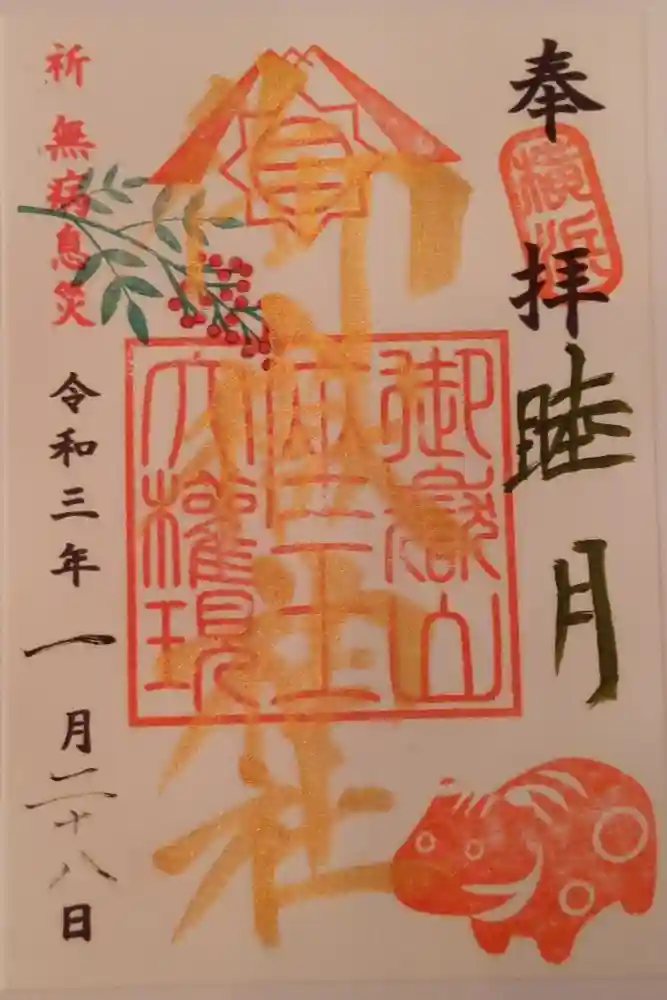 奉拝
横浜
睦月
御嶽神社
御嶽山
座王
大権現
祈 無病息災
令和三年一月二十八日